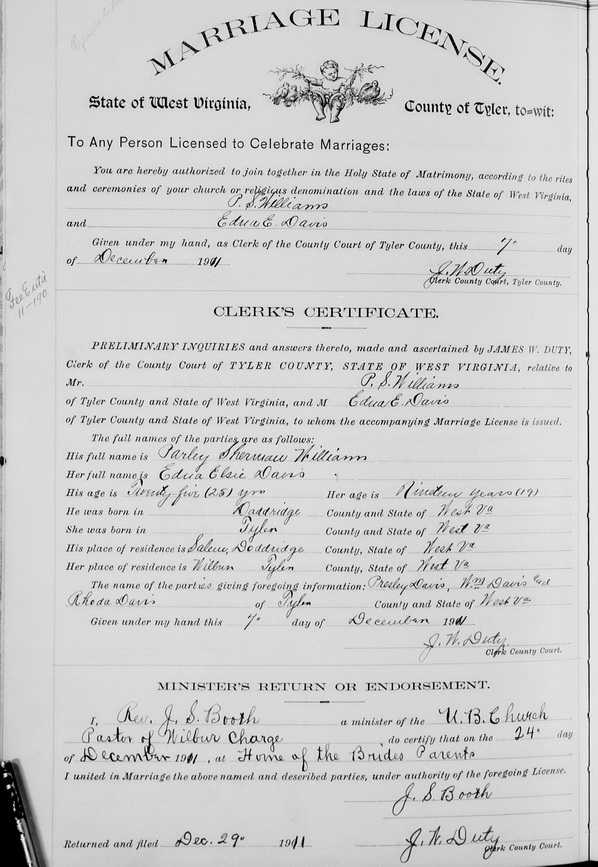 MARRIAGE LICENSE.
State of West Virginia, County of Tyler, to=wit:
To Any Person Licensed to Celebrate Marriages:
You are hereby authorized to join together in the Holy State of Matrimony, according to the rites
and ceremonies of your church or religious denomination and the laws of the State of West Virginia,
P. S. Williams
and Edna E. Davis
Given under my hand, as Clerk of the County Court of Tyler County, this 7" day
of December 1911
J. W. Duty
Clerk County Court, Tyler County.
11-190
CLERK'S CERTIFICATE.
PRELIMINARY INQUIRIES and answers thereto, made and ascertained by JAMES W. DUTY,
Clerk of the County Court of TYLER COUNTY, STATE OF WEST VIRGINIA, relative to
Mr. P. S. Williams
of Tyler County and State of West Virginia, and M Edna E. Davis
of Tyler County and State of West Virginia, to whom the accompanying Marriage License is issued.
The full names of the parties are as follows:
His full name is Parley Sherman Williams
Her full name is Edna Elsie Davis
His age is Twenty five (25) yrs Her age is Nineteen years (19)
He was born in Doddridge County and State of West Va
She was born in Tyler County and State of West Va
His place of residence is Salem, Doddridge County, State of West Va
Her place of residence is Wilbur Tyler County, State of West Va
The name of the parties giving foregoing information: Presley Davis, Wm Davis and
Rhoda Davis of Tyler County and State of West Va
Given under my hand this 7" day of December 1911
J. W. Duty
Clerk County Court.
MINISTER'S RETURN OR ENDORSEMENT.
I, Rev. J. S. Booth a minister of the U. B. Church
Pastor of Wilbur Charge do certify that on the 24" day
of December 1911, at Home of the Brides Parents
I united in Marriage the above named and described parties, under authority of the foregoing License.
J. S. Booth
Returned and filed Dec. 29" 1911 J. W. Duty
Clerk County Court.